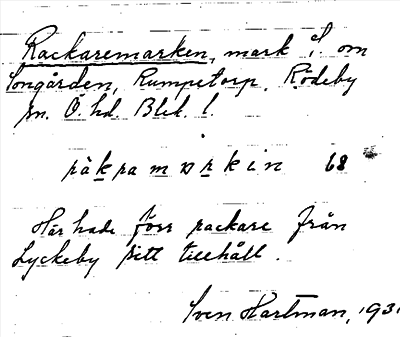 Rackaremarken, mark å. om
Songården, Rumpetorp, Rödeby
sn. Ö. hd. Blek. l.
räkramarkin 68
Här hade förr rackare från
Lyckeby sitt tillhåll.
Sven Hartman, 193